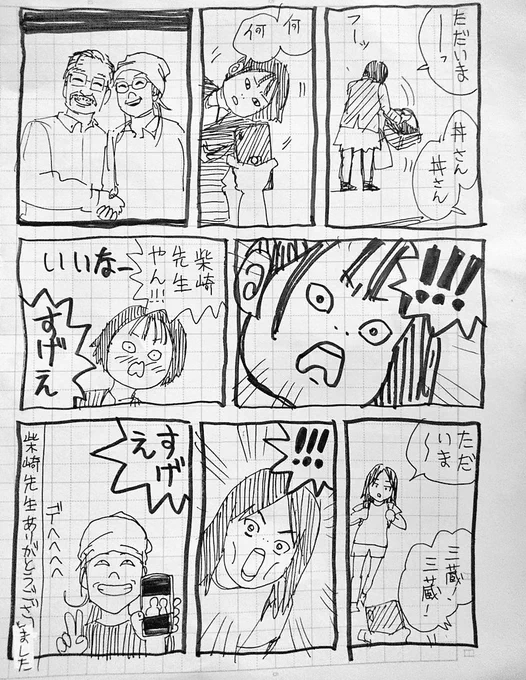 ただいま
ーーっ
フーッ
丼さん
丼さん
何
何
!!!
柴崎
先生
やん!!!
いいなー
すげえ
ただ
いま
〜
三蔵!
三蔵!
!!!
すげ
え
デヘヘヘヘ
柴崎先生ありがとうございました